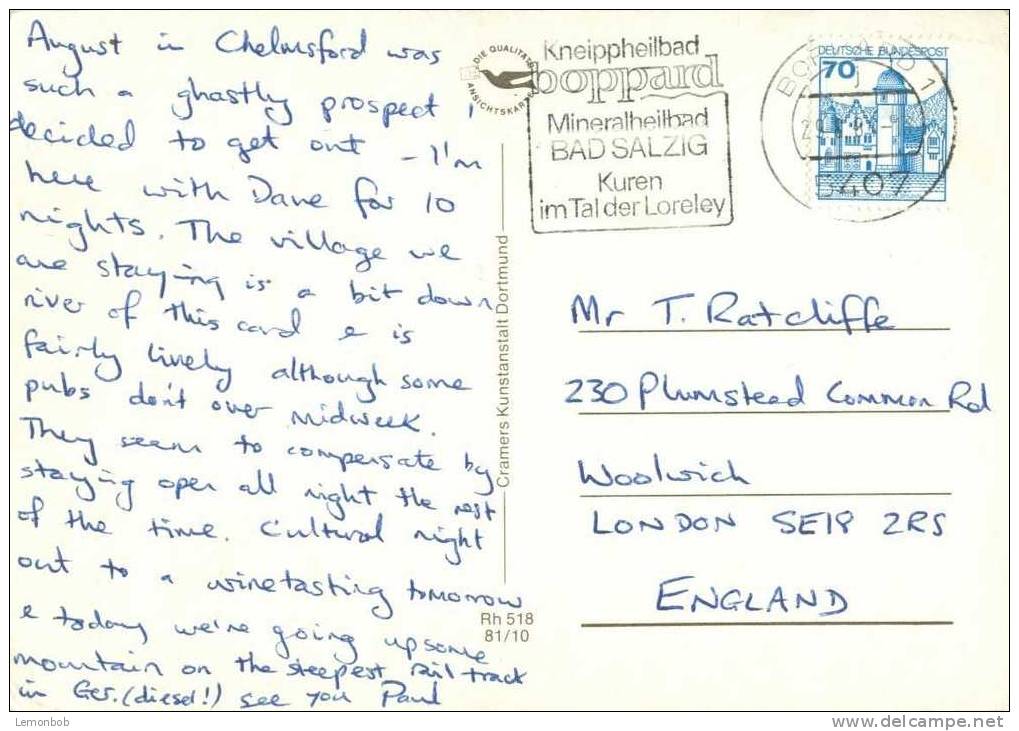 August in Chelmsford was
such a ghastly prospect I
decided to get out – I'm
here with Dave for 10
nights. The village we
are staying is a bit down
river of this card & is
fairly lively although some
pubs don't over midweek.
They seem to compensate by
staying open all night the rest
of the time. Cultural night
out to a winetasting tomorrow
& today we're going up some
mountain on the steepest rail track
in Ger. (diesel!) see you Paul
DIE QUALITÄTS
ANSICHTSKARTE
Kneippheilbad
boppard
Mineralheilbad
BAD SALZIG
Kuren
im Tal der Loreley
DEUTSCHE BUNDESPOST
70
1
5407
Cramers Kunstanstalt Dortmund
Rh 518
81/10
Mr T. Ratcliffe
230 Plumstead Common Rd
Woolwich
LONDON SE18 2RS
ENGLAND
Lemonbob
www.delcampe.net